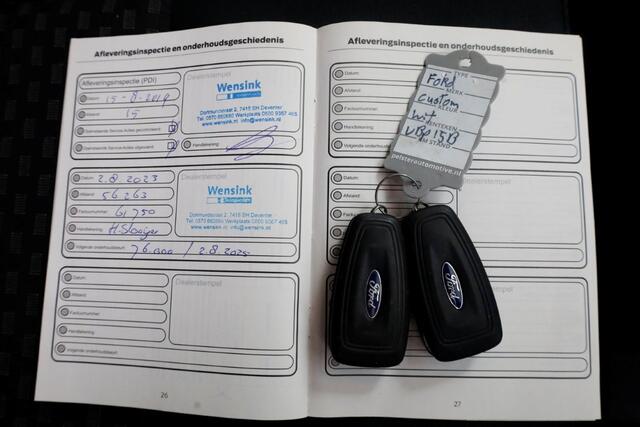 Afleveringsinspectie en onderhoudsgeschiedenis
Afleveringsinspectie (PDI)
Dealerstempel
Datum: 15-8-2019
Afstand: 15
Openstaande Service-Acties gecontroleerd:
Openstaande Service-Acties uitgevoerd:
Handtekening:
Wensink
Dortmundstraat 2, 7418 BH Deventer
Tel. 0570 660660 Werkplaats 0800 9367 465
www.wensink.nl info@wensink.nl
Datum: 2.8.2023
Afstand: 56.263
Factuurnummer: 61750
Handtekening:
Volgende onderhoudsbeurt: 76.000 / 2.8.2025
Dealerstempel
Wensink
Dortmundstraat 2, 7418 BH Deventer
Werkplaats 0800 9367 465
www.wensink.nl info@wensink.nl
Datum:
Afstand:
Factuurnummer:
Handtekening:
Volgende onderhoudsbeurt:
Dealerstempel
26
Afleveringsinspectie en onderhoudsgeschiedenis
Datum:
Afstand:
Factuurnummer:
Handtekening:
Volgende onderhoudsbeurt:
Datum:
Afstand:
Dealerstempel
27
TYPE
Ford
MERK
Custom
KLEUR
Wit
KENTEKEN
KM STAND
pelsterautomotive.nl
Ford
Ford